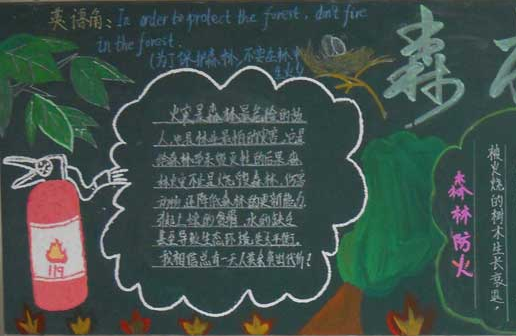 英语角：In order to protect the forest, don't fire
in the forest.
(为了保护森林，不要在林中
生火)
森
火灾是森林最危险的敌
人，也是林业最怕的灾害，它是
给森林带来毁灭性的后果。森
林火灾不止是烧毁森林，伤害
动物，还降低森林的更新能力，
甚至导致生态环境失去平衡。
我相信总有一天人类来负出代价！
119
森林防火
被火烧的树木生长衰退，